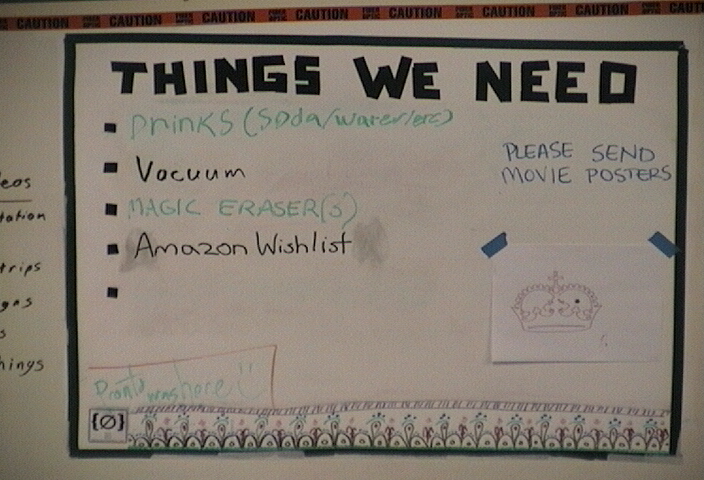 CAUTION CAUTION CAUTION CAUTION CAUTION CAUTION CAUTION CAUTION
THINGS WE NEED
Drinks (Soda/water/etc)
Vacuum
MAGIC ERASER(S)
Amazon Wishlist
PLEASE SEND
MOVIE POSTERS
eos
tation
trips
gns
s
hings
was here
{Ø}